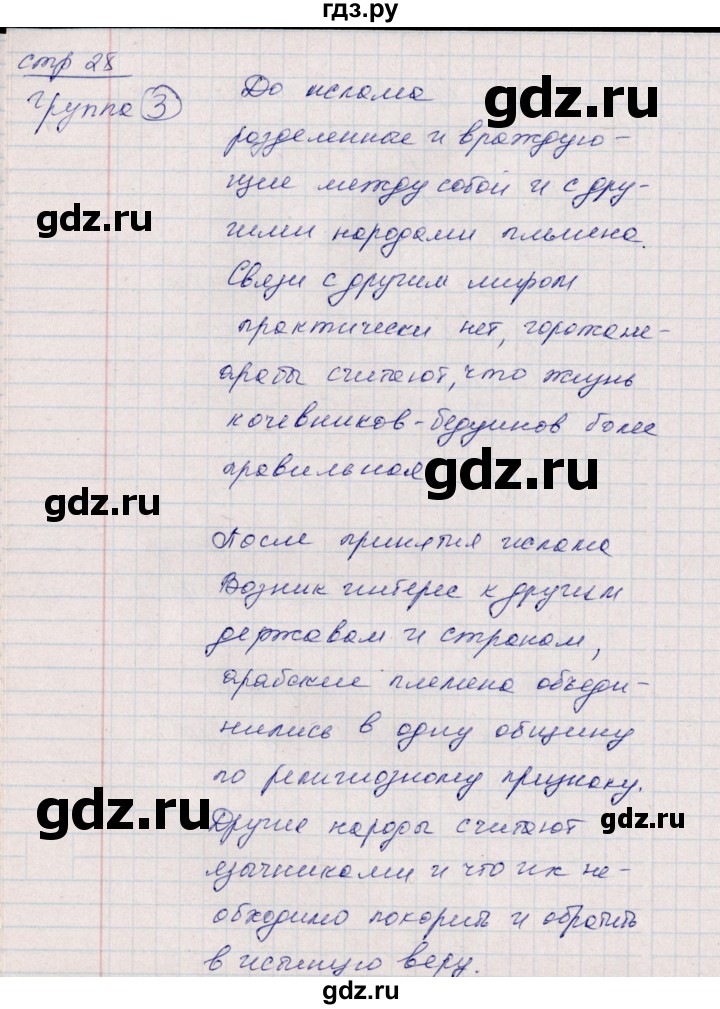 гдз.ру
стр 28
Группа 3
До ислама
разделенные и враждую-
щие между собой и с дру-
гими народами племена.
Связи с другим миром
практически нет, горожане-
арабы считают, что жизнь
кочевников-бедуинов более
правильная
gdz.ru
gdz.ru
gdz.ru
gdz.ru
gdz.ru
После принятия ислама
Возник интерес к другим
державам и странам,
арабские племена объеди-
нились в одну общину
по религиозному признаку.
Другие народы считают
язычниками и что их не-
обходимо покорить и обратить
в истинную веру.
gdz.ru
gdz.ru
gdz.ru
gdz.ru